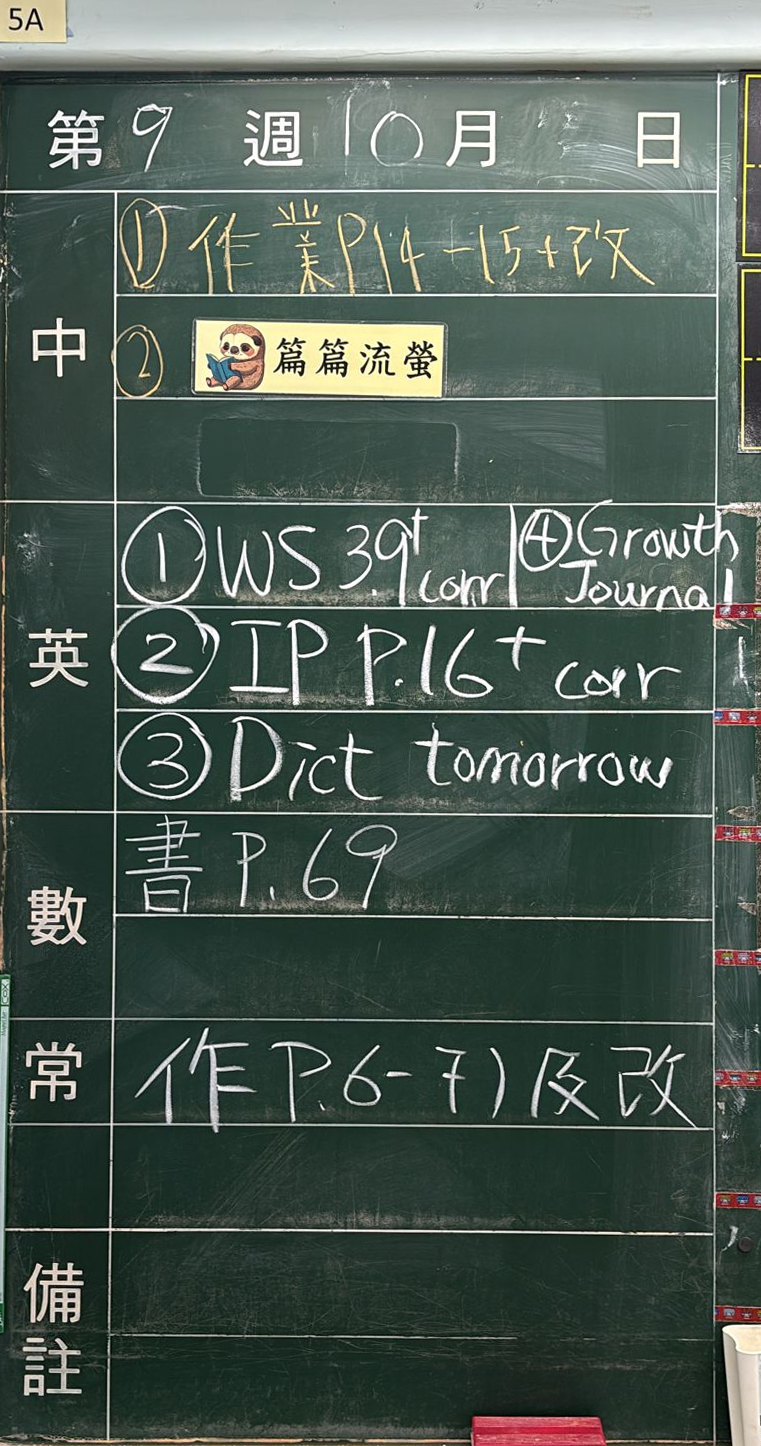 5A
第 9 週 10 月 日
中
① 作業 P14-15+改
② 篇篇流螢
英
① WS 3.9+ corr
④ Growth Journal
② IP P.16+ corr
③ Dict tomorrow
數
書 P.69
常
作 P.6-7) 及改
備註